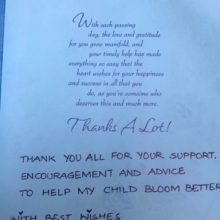 With each passing
day, the love and gratitude
for you grow manifold, and
your timely help has made
everything so easy that the
heart wishes for your happiness
and success in all that you
do, as you're someone who
deserves this and much more.
Thanks A Lot!
THANK YOU ALL FOR YOUR SUPPORT,
ENCOURAGEMENT AND ADVICE
TO HELP MY CHILD BLOOM BETTER
WITH BEST WISHES